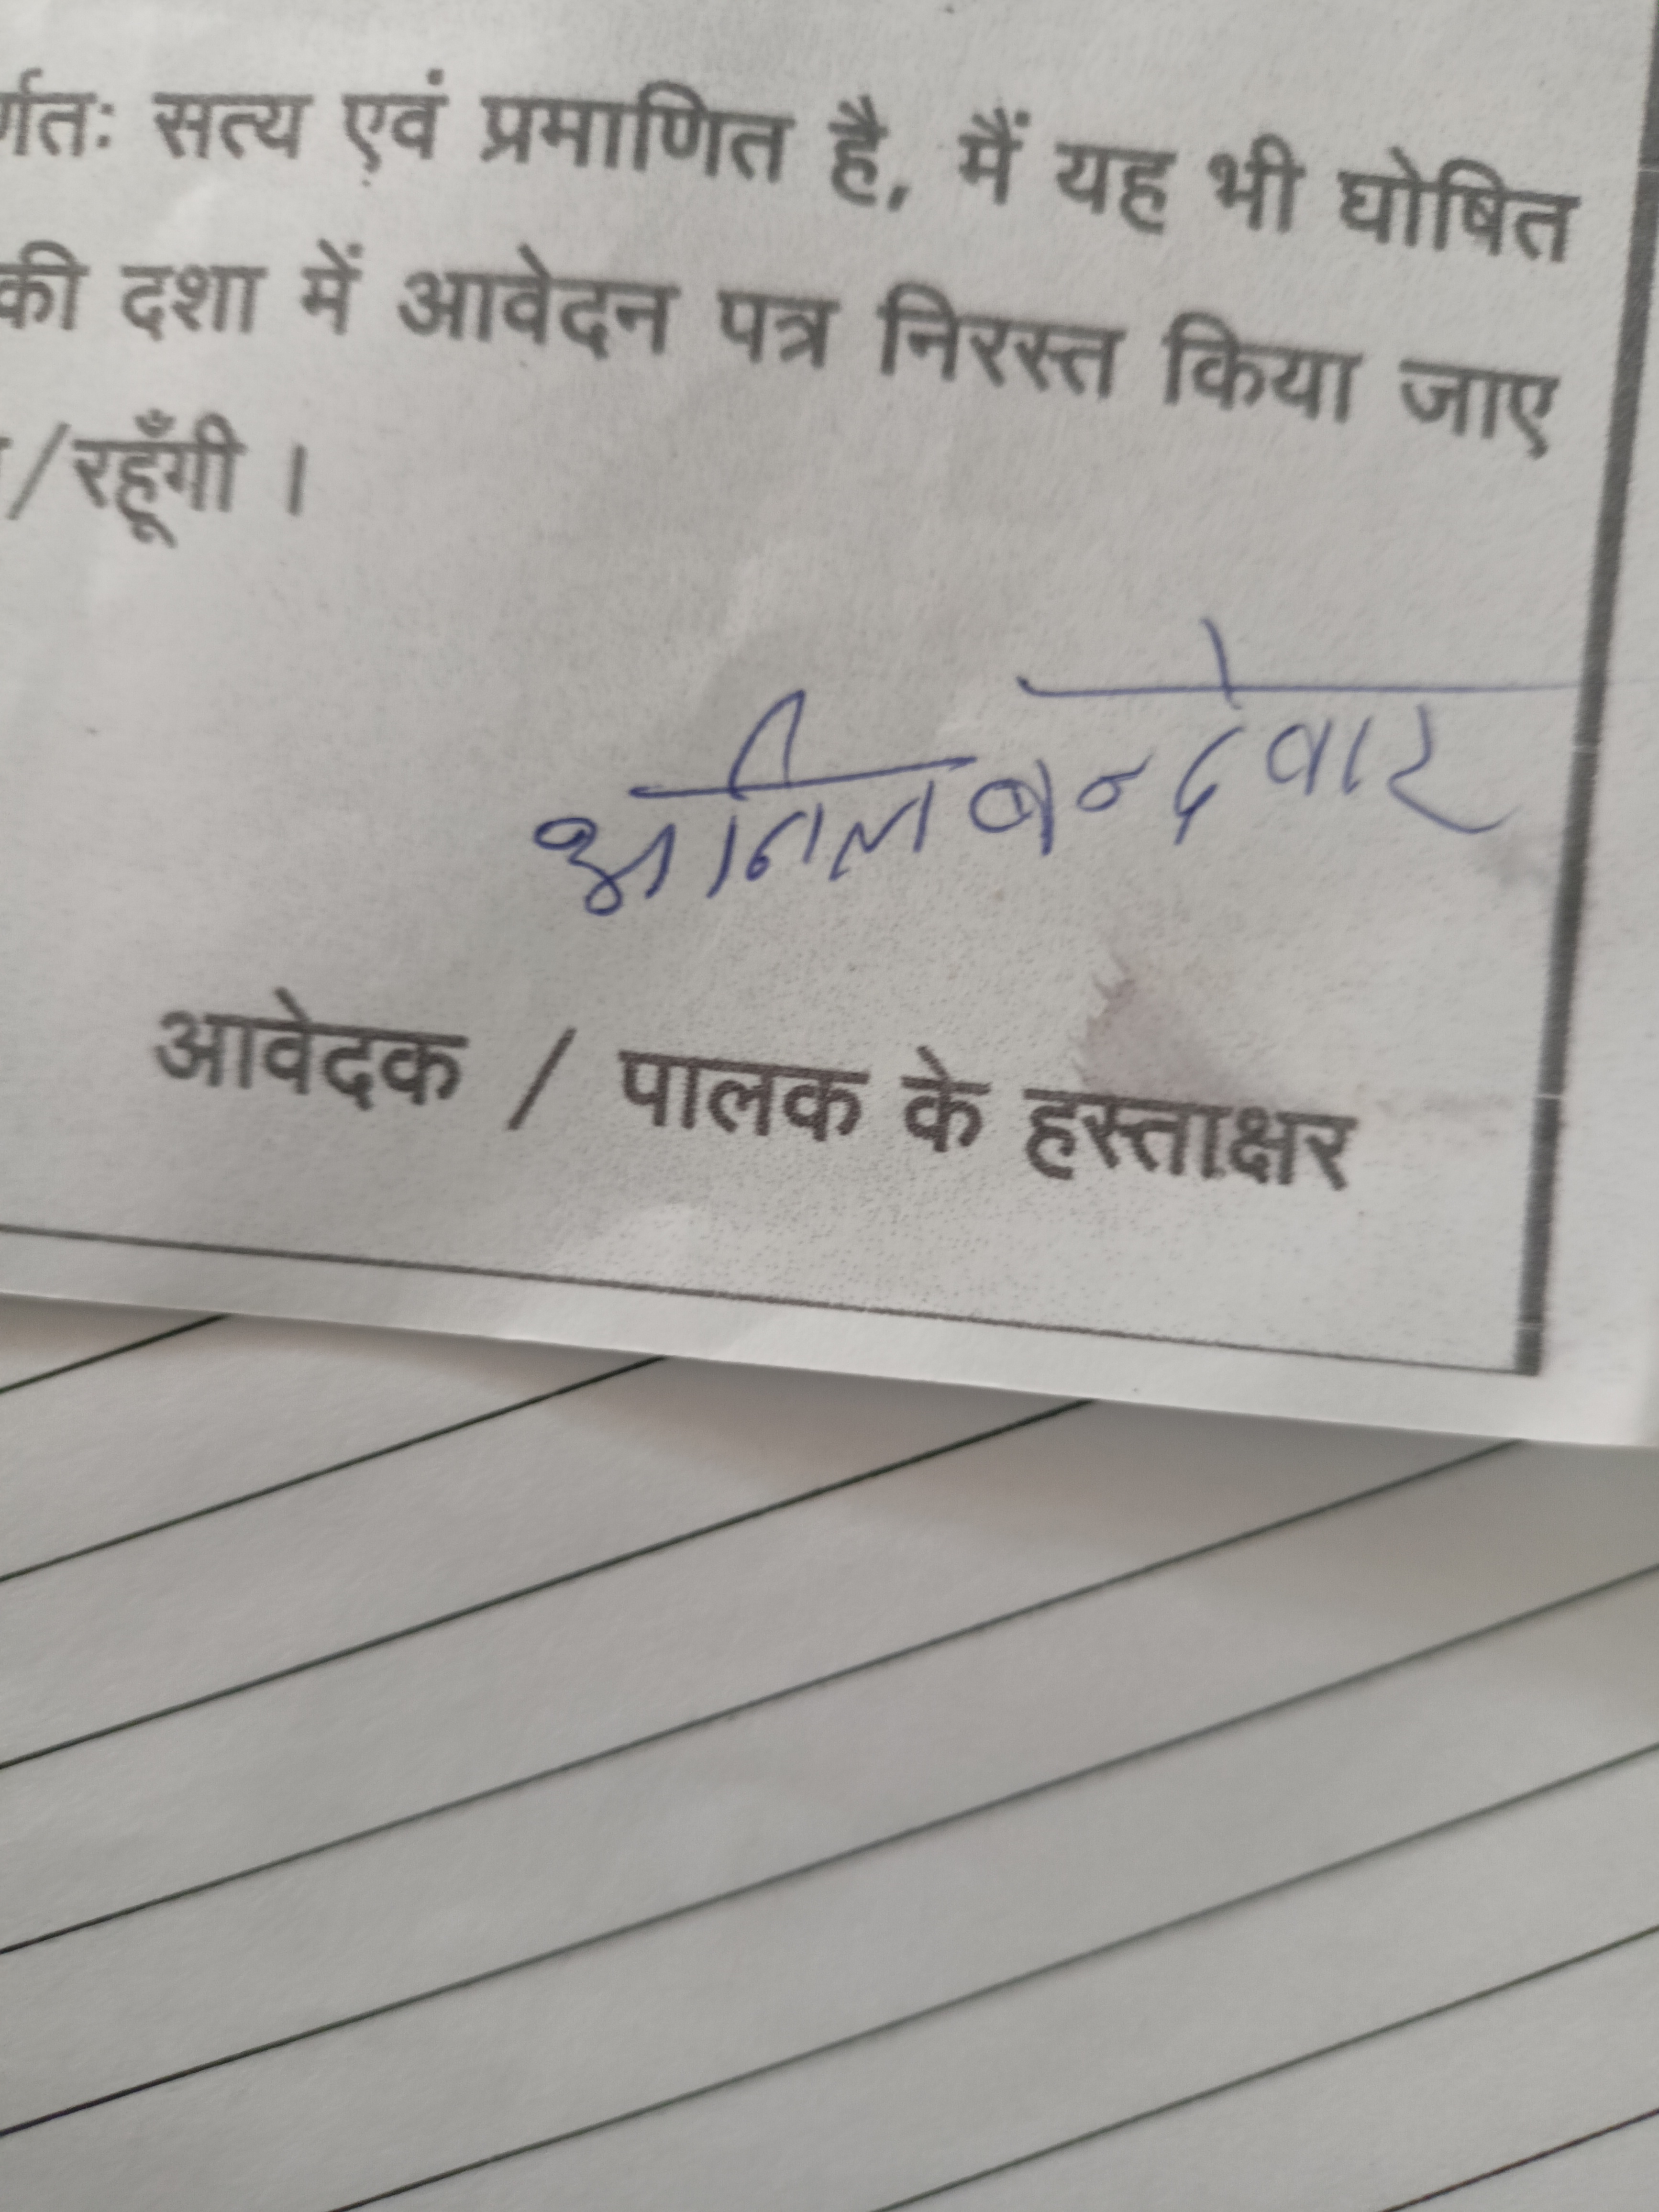 र्णतः सत्य एवं प्रमाणित है, मैं यह भी घोषित
की दशा में आवेदन पत्र निरस्त किया जाए
/रहूँगी ।
अनिल बन्देवार
आवेदक / पालक के हस्ताक्षर